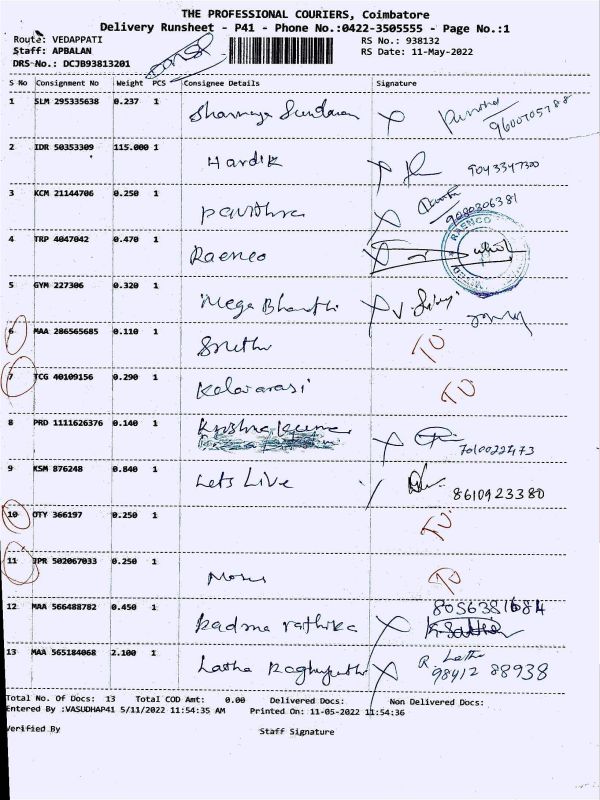 THE PROFESSIONAL COURIERS, Coimbatore
Delivery Runsheet - P41 - Phone No.:0422-3505555 - Page No.:1
Route: VEDAPPATI RS No.: 938132
Staff: APBALAN RS Date: 11-May-2022
DRS No.: DCJB93813201
S No Consignment No Weight PCS Consignee Details Signature
1 SLM 295335638 0.237 1 9600705788
2 IDR 50353309 115.000 1 Hardik 9043347300
3 KCM 21144706 0.250 1 Pavithra 9080306381
4 TRP 4047042 0.470 1 Raenco RAENCO
5 GYM 227306 0.320 1 Mega Bharathi
6 MAA 286565685 0.110 1 TO
7 TCG 40109156 0.290 1 Kalavarasi TO
8 PRD 1111626376 0.140 1 Krishna Kumar
9 KSM 876248 0.840 1 Lets Live 8610923380
10 OTY 366197 0.250 1 TO
11 JPR 502067033 0.250 1 TO
12 MAA 566488782 0.450 1 Padma rathika 8056381684
13 MAA 565184068 2.100 1 Latha Raghupathi R. Latha
98412 88938
Total No. Of Docs: 13 Total COD Amt: 0.00 Delivered Docs: Non Delivered Docs:
Entered By :VASUDHAP41 5/11/2022 11:54:35 AM Printed On: 11-05-2022 11:54:36
Verified By Staff Signature